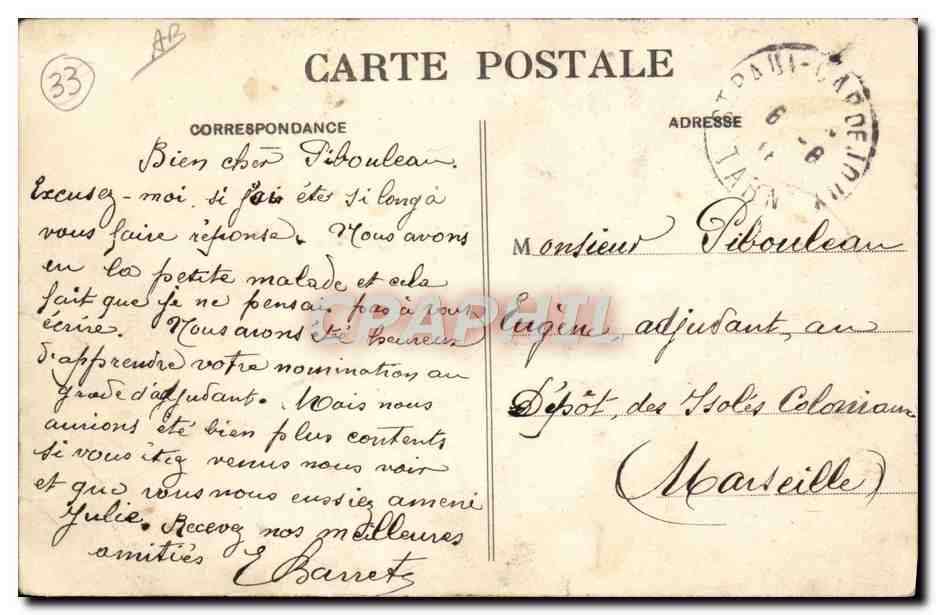 33
AB
CARTE POSTALE
CORRESPONDANCE
ADRESSE
Bien cher Pibouleau.
Excusez-moi si j'ai été si long à
vous faire réponse. Nous avons
eu la petite malade et cela
fait que je ne pensai pas à vous
écrire. Nous avons été heureux
d'apprendre votre nomination au
grade d'adjudant. Mais nous
aurions été bien plus contents
si vous étiez venus nous voir
et que vous nous eussiez amené
Julie. Recevez nos meilleures
amitiés
E Barret
Monsieur Pibouleau
Eugène adjudant, au
Dépôt, des Isolés Coloniaux
(Marseille)
ST PAUL-CAP DE JOUX
TARN
CPAPHIL